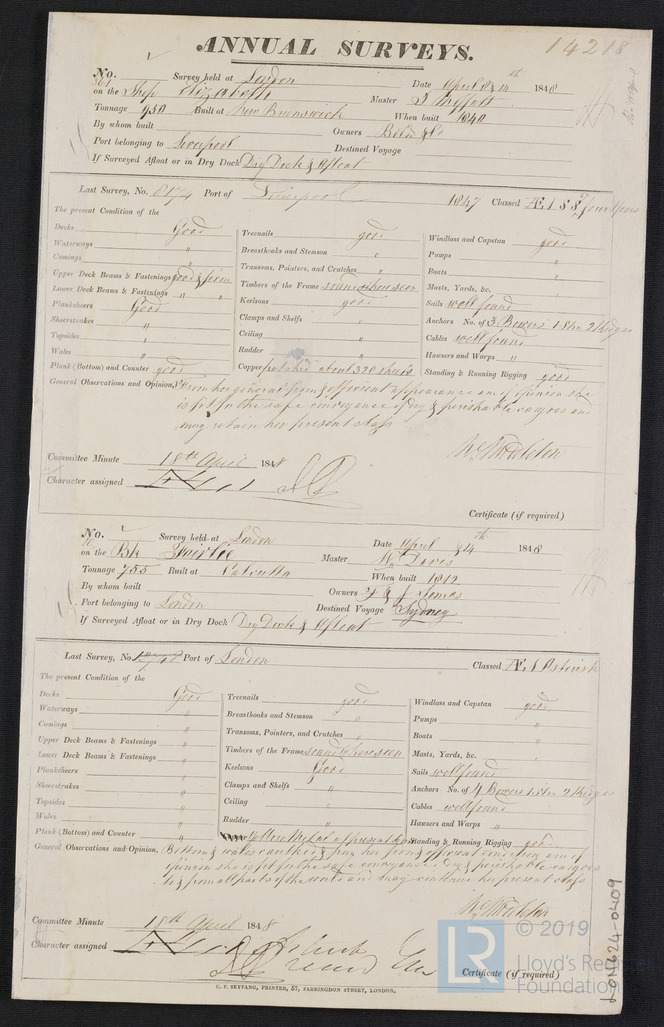 ANNUAL SURVEYS.
14218
No. 361 Survey held at London Date April 8 & 14th 1848
on the Ship Elizabeth Master
Tonnage 930 Built at New Brunswick When built 1840
By whom built Owners
Port belonging to Liverpool Destined Voyage
If Surveyed Afloat or in Dry Dock Dry Dock & Afloat
Last Survey, No. Port of Liverpool 1847 Classed Æ 1 four Years
The present Condition of the
Decks Good Treenails good Windlass and Capstan good
Waterways " Breasthooks and Stemson " Pumps "
Comings " Transoms, Pointers, and Crutches " Boats "
Upper Deck Beams & Fastenings good & firm Timbers of the Frame sound where seen Masts, Yards, &c. "
Lower Deck Beams & Fastenings " " Keelsons good Sails well found
Planksheers Good Clamps and Shelfs " Anchors No. of 3 Bowers 1 Stm 2 Kedges
Sheerstrakes " Ceiling " Cables well found
Topsides " Rudder " Hawsers and Warps "
Wales " Copper patched about 320 sheets Standing & Running Rigging good
Plank (Bottom) and Counter good
General Observations and Opinion, From her general firm & efficient appearance am of opinion she
is fit for the safe conveyance of dry & perishable cargoes and
may retain her present class
Committee Minute 18th April 1848
Character assigned
Certificate (if required)
No. Survey held at London Date April 14th 1848
on the Bk Fairlie Master Wm
Tonnage 755 Built at Calcutta When built 1812
By whom built Owners
Port belonging to London Destined Voyage Sydney
If Surveyed Afloat or in Dry Dock Dry Dock & Afloat
Last Survey, No. Port of London Classed Æ 1 Asterisk
The present Condition of the
Decks Good Treenails good Windlass and Capstan good
Waterways " Breasthooks and Stemson " Pumps "
Comings " Transoms, Pointers, and Crutches " Boats "
Upper Deck Beams & Fastenings " Timbers of the Frame sound where seen Masts, Yards, &c. "
Lower Deck Beams & Fastenings " Keelsons Good Sails well found
Planksheers " Clamps and Shelfs " Anchors No. of 4 Bowers 1 Stm 2 Kedges
Sheerstrakes " Ceiling " Cables well found
Topsides " Rudder " Hawsers and Warps "
Wales " Standing & Running Rigging good
Plank (Bottom) and Counter "
General Observations and Opinion, Bottom & wales caulked & from her firm & efficient condition am of
opinion she is fit for the safe conveyance of Dry & perishable cargoes
to & from all parts of the world and may continue her present class
Committee Minute 18th April 1848
Character assigned
Certificate (if required)
C. F. SEYFANG, PRINTER, 57, FARRINGDON STREET, LONDON.
LON624-0409
LR
© 2019
Lloyd's Register
Foundation